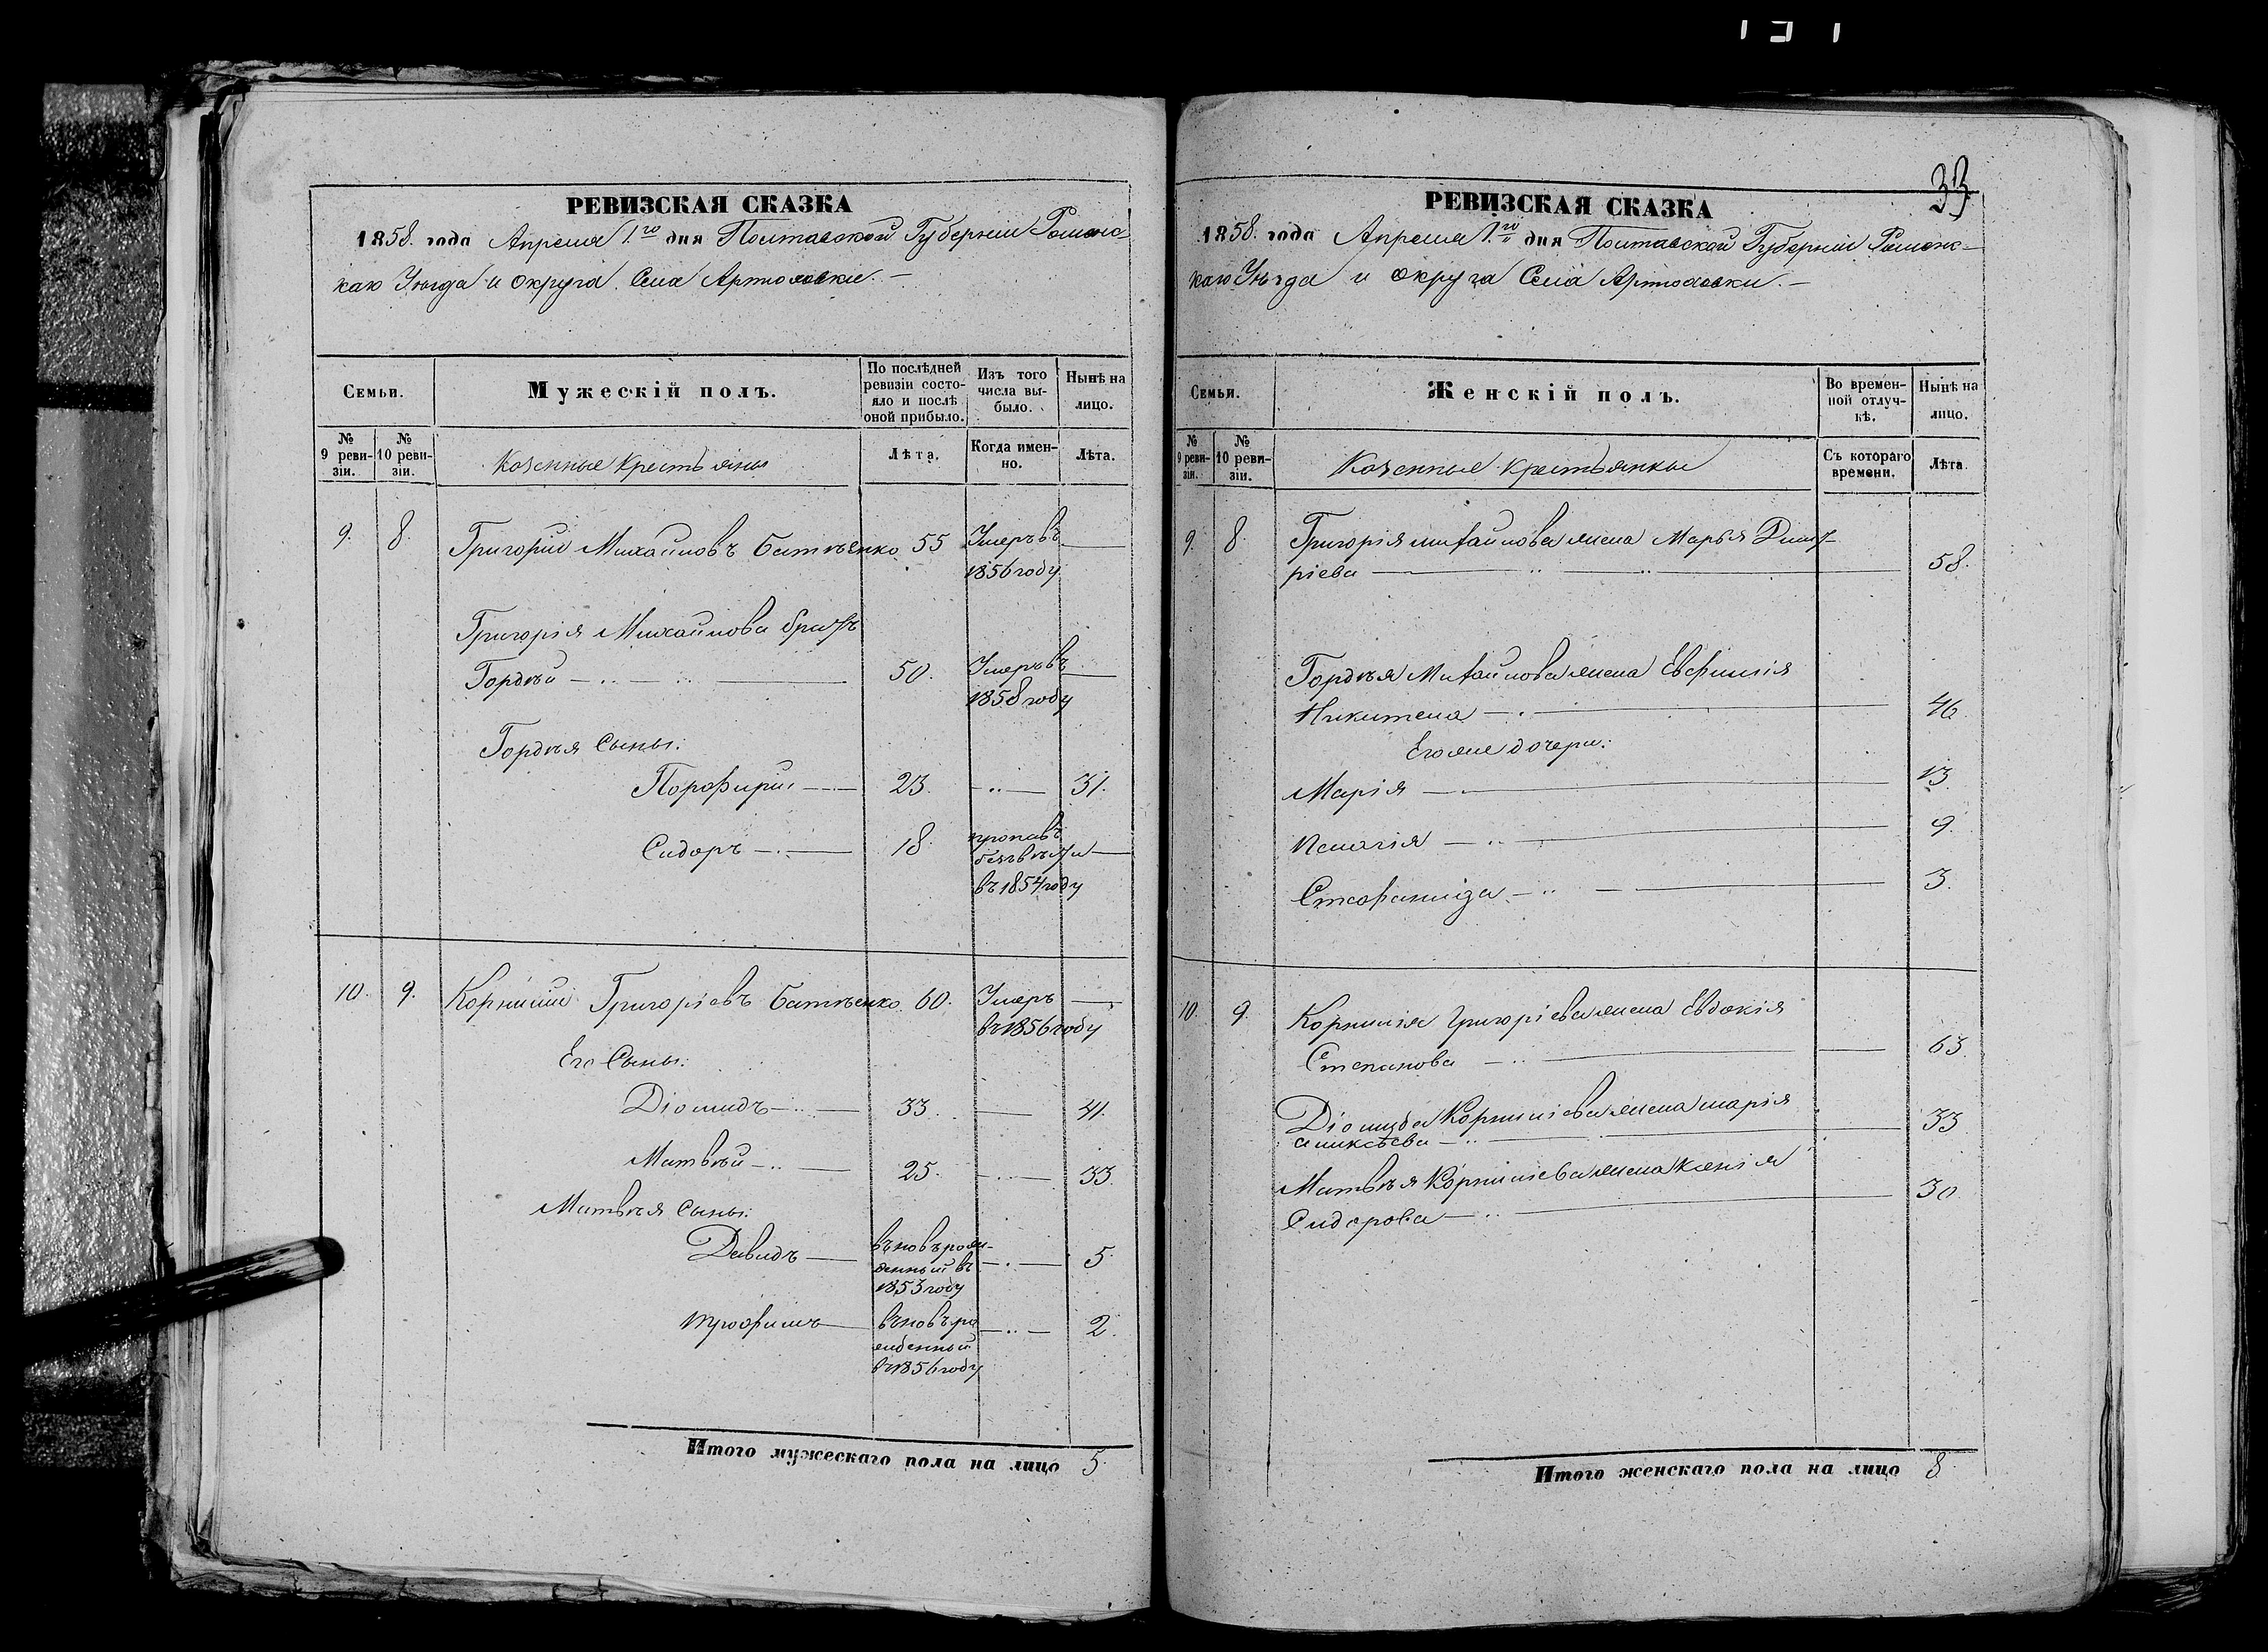 РЕВИЗСКАЯ СКАЗКА
1858. года Апреля 1.го дня Полтавской Губернии Роменс-
каго Уѣзда и округа. Села Артоловки. —
Семьи.
Мужескій полъ.
По послѣдней ревизіи состояло и послѣ оной прибыло.
Изъ того числа выбыло.
Нынѣ на лицо.
№ 9 ревизіи.
№ 10 ревизіи.
Казенные крестьяны
Лѣта.
Когда именно.
Лѣта.
9. 8. Григорий Михайловъ Батѣенко 55 Умеръ въ —
1856 году
Григорія Михайлова братъ
Гордѣй — 50. Умеръ въ —
1858 году
Гордѣя Сыны:
Порофирий — 23. — 31.
Сидоръ — 18. пропавъ
безъ вѣсти —
въ 1854 году
10. 9. Корнилий Григоріевъ Батѣенко 60. Умеръ —
въ 1856 году
Его Сыны:
Діомидъ — 33. — 41.
Матвѣй — 25. — 33.
Матвѣя Сыны:
Давидъ — въновьрож-
денный въ — 5.
1853 году
Трофимъ — въновьро
жденный — 2.
въ 1856 году
Итого мужескаго пола на лицо 5.
33
РЕВИЗСКАЯ СКАЗКА
1858. года Апреля 1.го дня Полтавской Губернии Роменс-
каго Уѣзда и округа Села Артоловки. —
Семьи.
Женскій полъ.
Во временной отлучкѣ.
Нынѣ на лицо.
№ 9 ревизіи.
№ 10 ревизіи.
Казенные крестьянки
Съ котораго времени.
Лѣта
9. 8. Григорія михайлова жена Марья Дмит-
ріева — 58.
Гордѣя Михайлова жена Евфимія
Никитена — 46.
Его же дочери:
Марія — 13.
Пелагія — 9.
Стефанида — 3.
10. 9. Корнилія Григоріева жена Евдокія
Степанова — 63.
Діомида Корниліева жена марія
аликсѣева — 33
Матвѣя Корниліева жена Ксенія
Сидорова — 30
Итого женскаго пола на лицо 8